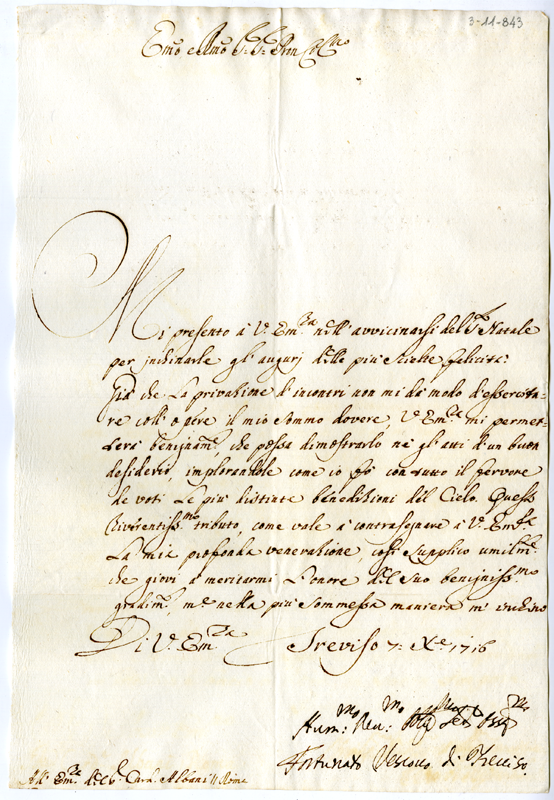 3-11-843
Emo e Rmo Sr. Sr. Pron Colmo
Mi presento à V. Emza nell' avvicinarsi del Sto Natale
per inchinarle gl' augurj delle più scielte felicità:
Già che La privazione d' incontri non mi dà modo d' essercita-
re coll' opére il mio sommo dovere, V. Emza mi permet-
terà benignamte, che possa dimostrarlo ne gli atti d' un buon
desiderio, implorandole come io fò con tutto il fervore
de voti Le più distinte benedizioni dèl Cielo. Questo
riverentissmo tributo, come vale à contrasegnare à V. Emza
La mia profonda venerazione, così supplico umilmte
che giovi à meritarmi L' onore del suo benignissmo
gradimto, me nella più sommessa maniera m' inchino
Di V. Emza Treviso 7: Xe 1716
Hummo: Revmo:
Fortunato Vescovo di Treviso.
All' Emza del Sr Card. Albani // Roma